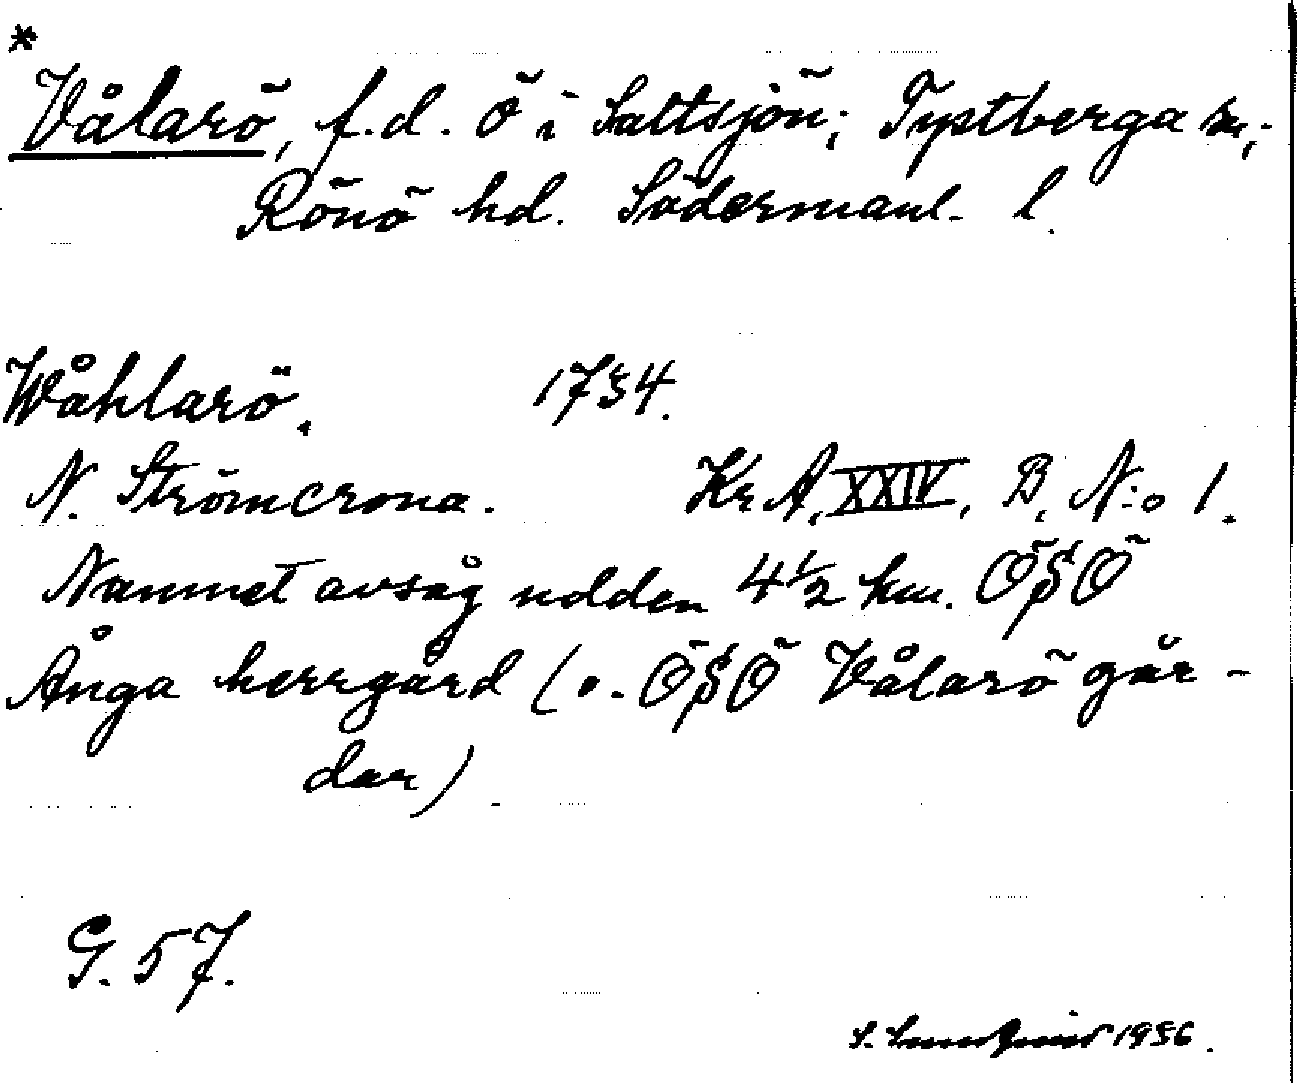 *
Vålarö, f.d. Ö i Saltsjön; Tystberga sn;
Rönö hd. Södermanl. l.
Wåhlarö. 1734.
N. Strömcrona. Kr. A, XXIV, B, N:o 1.
Namnet avsåg udden 4 1/2 km. ÖSÖ
Ånga herrgård (o. ÖSÖ Vålarö går-
dar)
G. 57.
S. 1936.